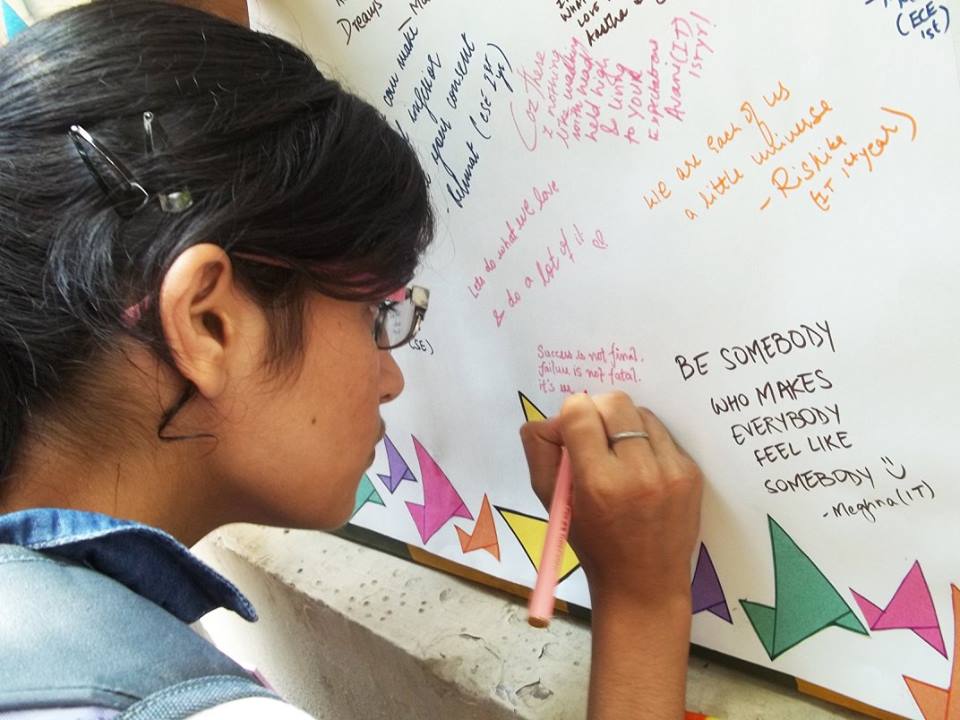 Dreams
can make
inferior
your consent
(CSE 1st yr)
WHAT
LOVE
Coz there
i nothing
like walking
with head
held high
& living
to your
Expectations
Avani (IT)
1st yr!
(ECE
1st)
we are each of us
a little universe
- Rishika
(IT 1st year)
Lets do what we love
& do a lot of it
Success is not final.
failure is not fatal.
it's
BE SOMEBODY
WHO MAKES
EVERYBODY
FEEL LIKE
SOMEBODY
- Meghna (IT)